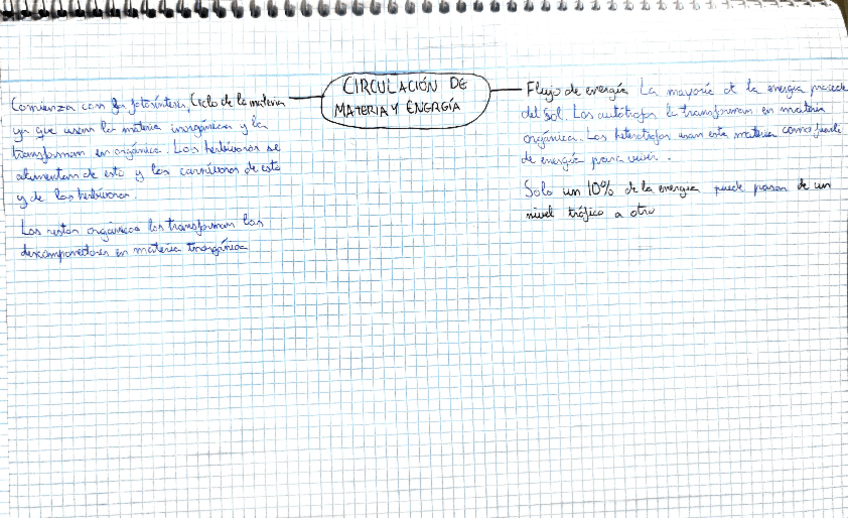 CIRCULACIÓN DE
MATERIA Y ENERGÍA
Ciclo de la materia
Comienza con la fotosíntesis,
ya que usan la materia inorgánica y la
transforman en orgánica. Los herbívoros se
alimentan de esto y los carnívoros de esto
y de los herbívoros.
Los restos orgánicos los transforman los
descomponedores en materia inorgánica
Flujo de energía La mayoría de la energía procede
del sol. Los autótrofos la transforman en materia
orgánica. Los heterótrofos usan esta materia como fuente
de energía para vivir.
Solo un 10% de la energía puede pasar de un
nivel trófico a otro